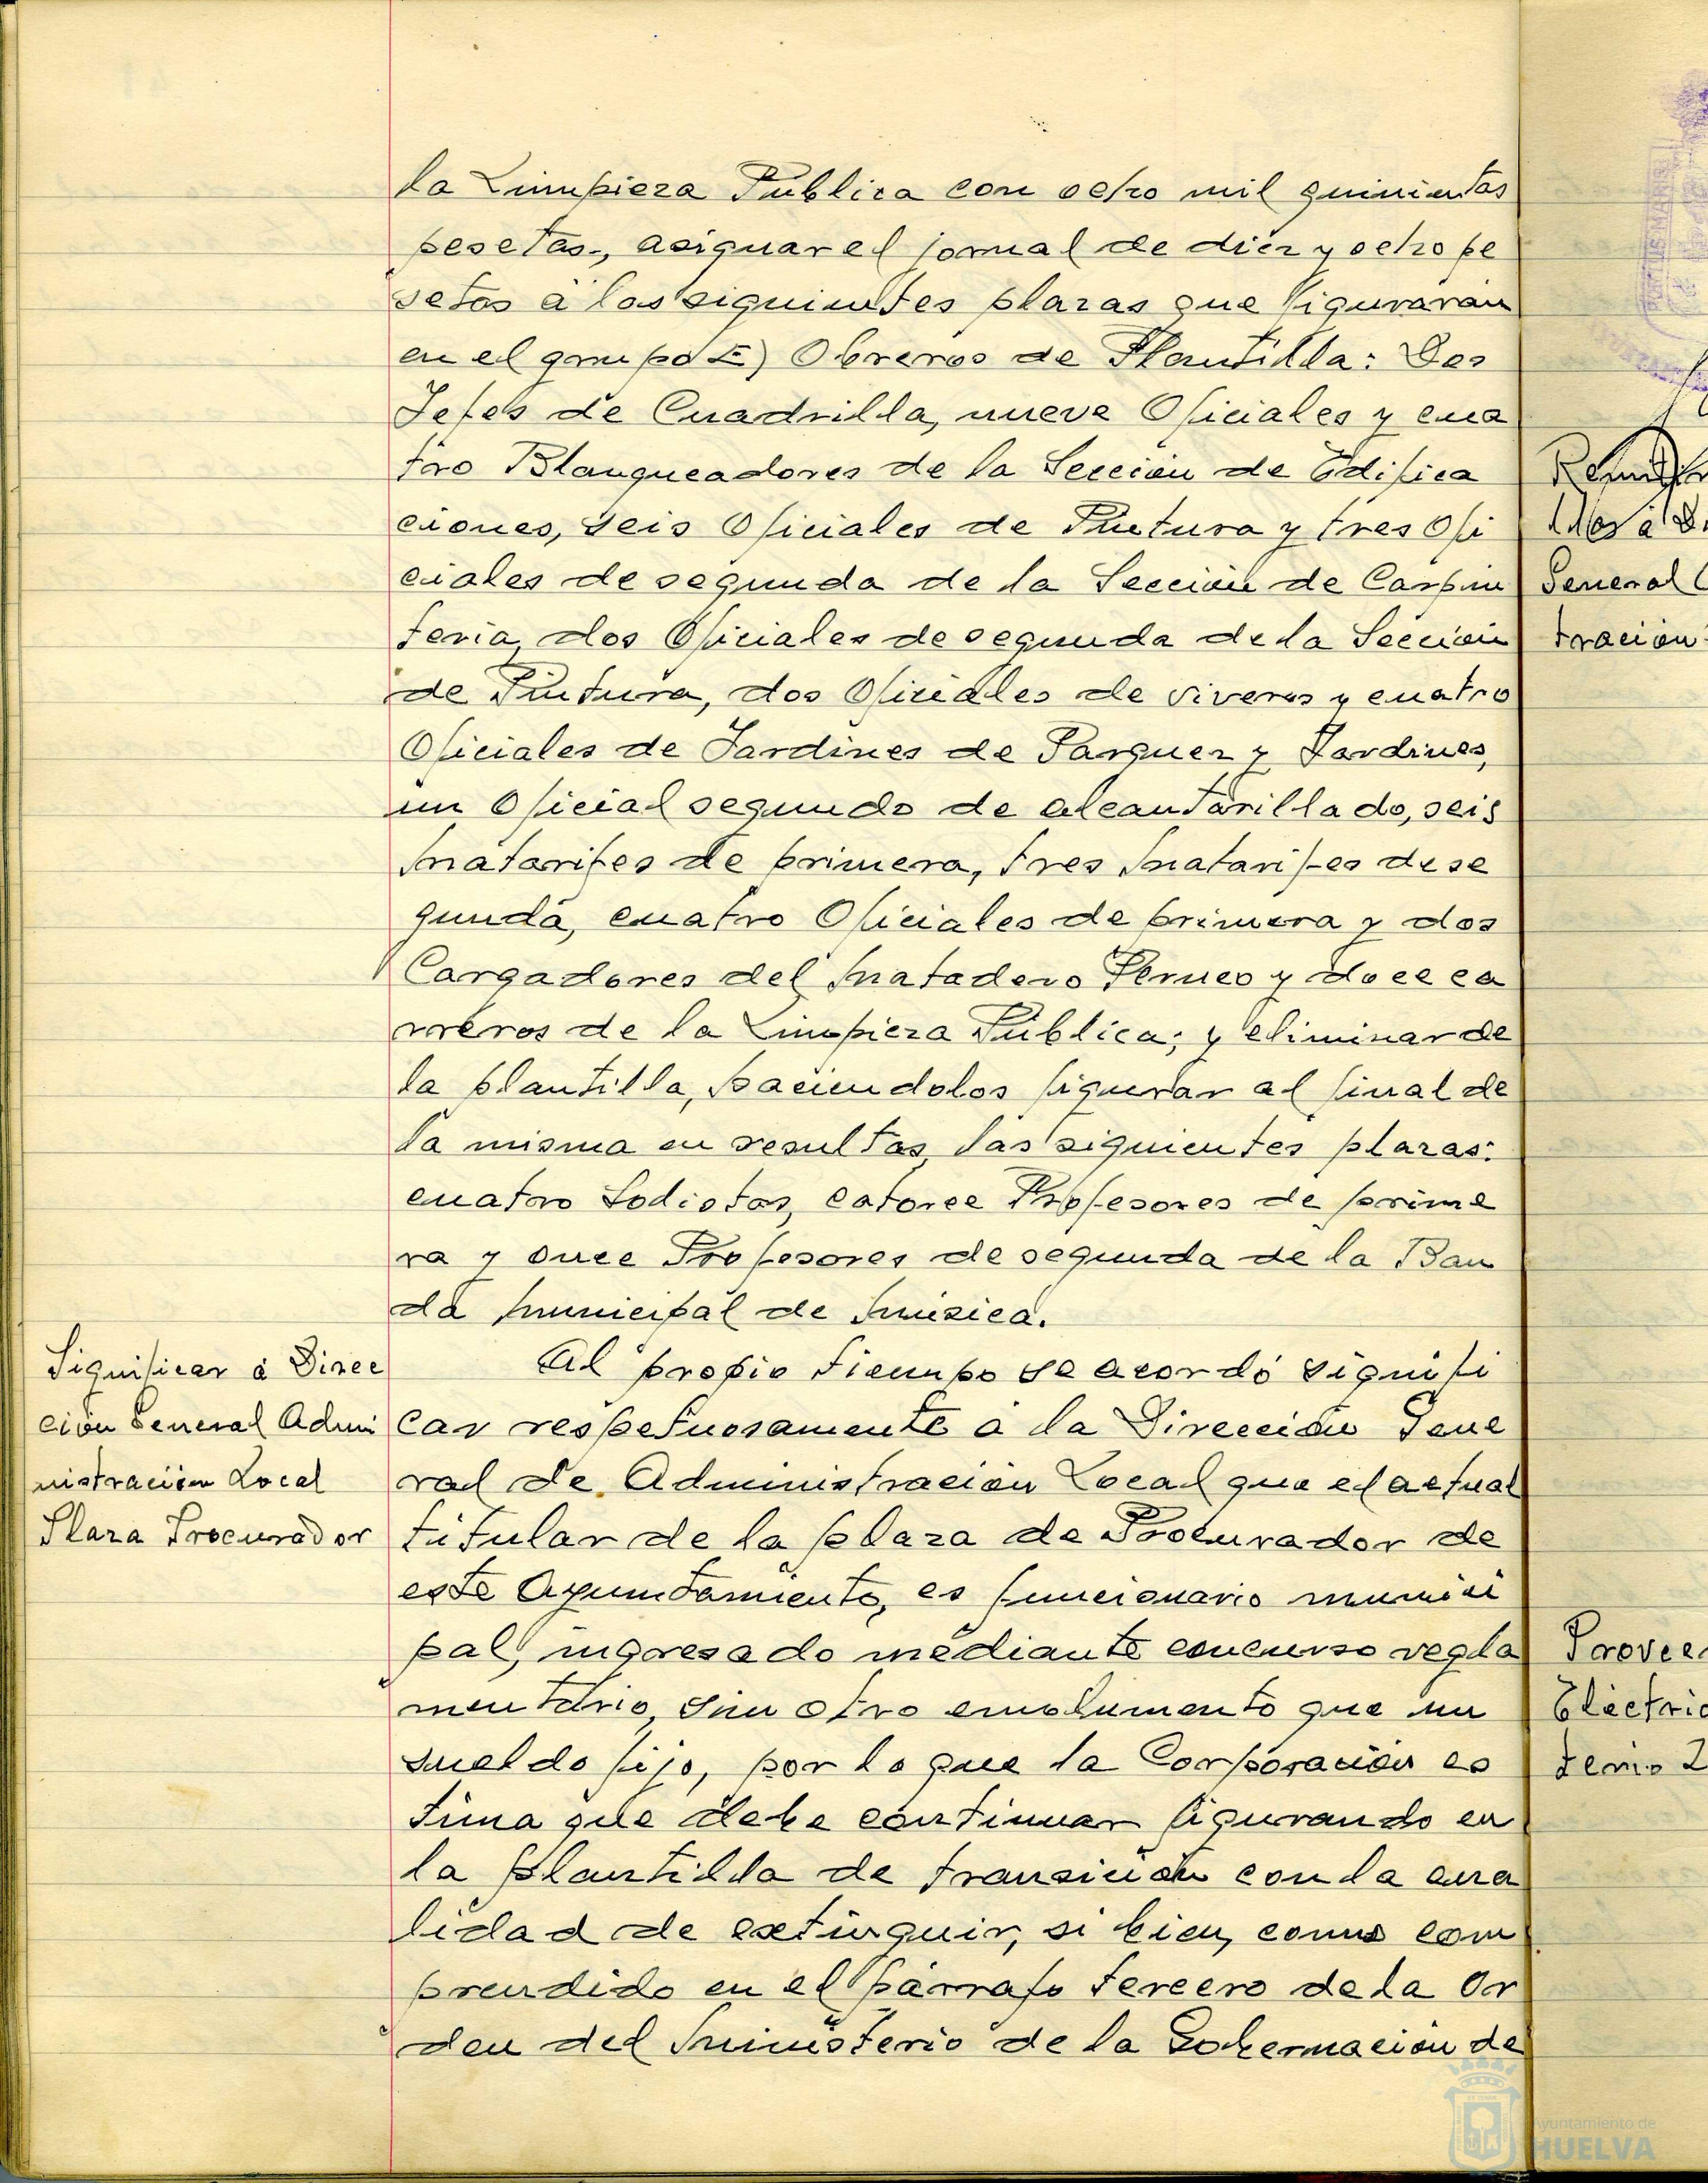 la Limpieza Publica con ocho mil quinientas
pesetas, asignar el jornal de diez y ocho pe
setas a las siguientes plazas que figuraran
en el grupo E) Obreros de Plantilla: Dos
Jefes de Cuadrilla, nueve Oficiales y cua
tro Blanqueadores de la Sección de Edifica
ciones, seis Oficiales de Pintura y tres Ofi
ciales de segunda de la Sección de Carpin
teria, dos Oficiales de segunda de la Sección
de Pintura, dos Oficiales de viveros y cuatro
Oficiales de Jardines de Parques y Jardines,
un Oficial segundo de alcantarillado, seis
Matarifes de primera, tres Matarifes de se
gunda, cuatro Oficiales de primera y dos
Cargadores del Matadero Perneo y doce ca
rreros de la Limpieza Pública; y eliminar de
la plantilla, haciendolos figurar al final de
la misma en resultas, las siguientes plazas:
cuatro Sodistas, catorce Profesores de prime
ra y once Profesores de segunda de la Ban
da Municipal de Música.
Significar a Direc
ción General Admi
nistración Local
Plaza Procurador
Al propio tiempo se acordó signifi
car respetuosamente a la Dirección Gene
ral de Administración Local que el actual
titular de la plaza de Procurador de
este Ayuntamiento, es funcionario munici
pal, ingresado mediante concurso regla
mentario, sin otro emolumento que un
sueldo fijo, por lo que la Corporación es
tima que debe continuar figurando en
la plantilla de transición con la cua
lidad de extinguir, si bien, como com
prendido en el párrafo tercero de la Or
den del Ministerio de la Gobernación de
General
tración
Provee
Eléctric
terio 2
Ayuntamiento de
HUELVA